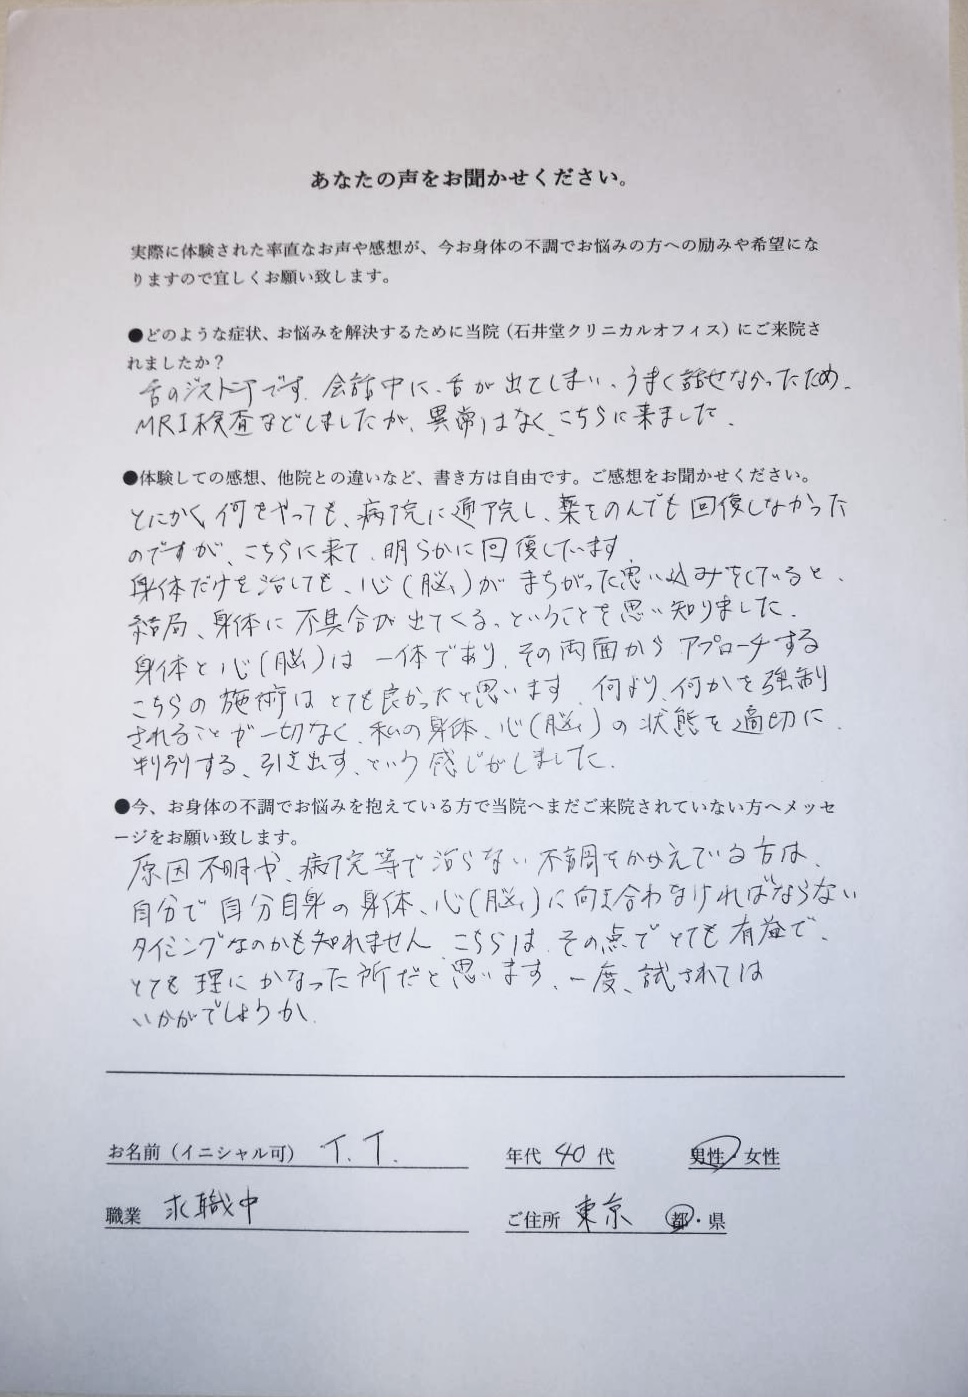 あなたの声をお聞かせください。
実際に体験された率直なお声や感想が、今お身体の不調でお悩みの方への励みや希望にな
りますので宜しくお願い致します。
●どのような症状、お悩みを解決するために当院（石井堂クリニカルオフィス）にご来院さ
れましたか？
舌のジストニアです。会話中に、舌が出てしまい、うまく話せなかったため、
MRI検査などしましたが、異常はなく、こちらに来ました。
●体験しての感想、他院との違いなど、書き方は自由です。ご感想をお聞かせください。
とにかく何をやっても、病院に通院し、薬をのんでも回復しなかった
のですが、こちらに来て、明らかに回復しています。
身体だけを治しても、心（脳）がまちがった思い込みをしていると、
結局、身体に不具合が出てくる、ということを思い知りました。
身体と心（脳）は一体であり、その両面からアプローチする
こちらの施術はとても良かったと思います。何より、何かを強制
されることが一切なく、私の身体、心（脳）の状態を適切に
判別する、引き出す、という感じがしました。
●今、お身体の不調でお悩みを抱えている方で当院へまだご来院されていない方へメッセ
ージをお願い致します。
原因不明や、病院等で治らない不調をかかえている方は、
自分で自分自身の身体、心（脳）に向き合わなければならない
タイミングなのかも知れません。こちらは、その点でとても有益で、
とても理にかなった所だと思います。一度、試されては
いかがでしょうか。
お名前（イニシャル可） T.T. 年代 40 代 男性・女性
職業 求職中 ご住所 東京 都・県